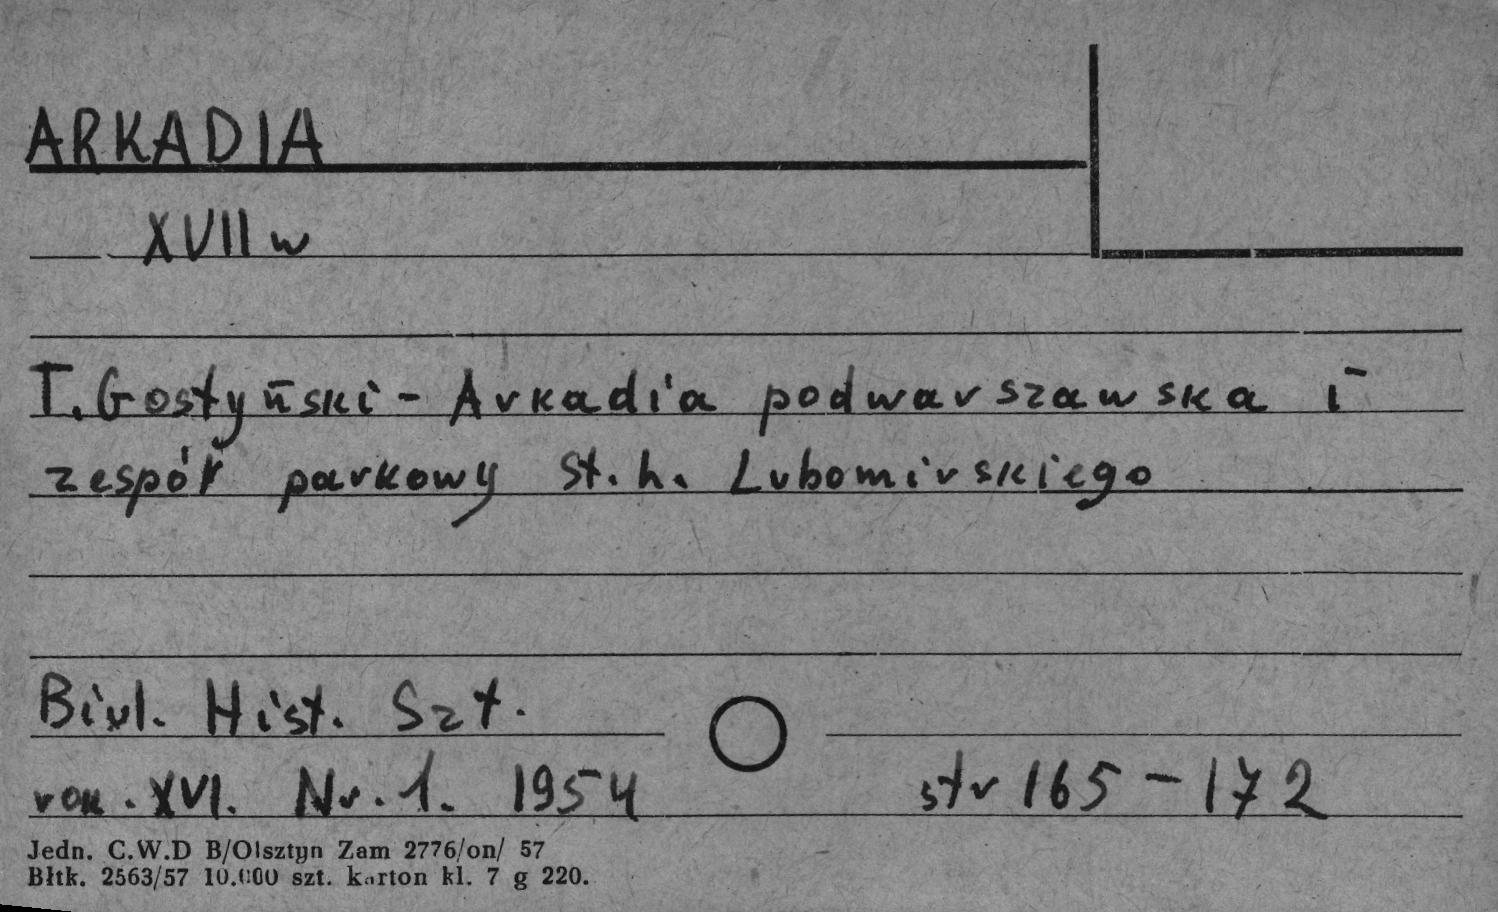 ARKADIA
XVII w
T. Gostyński - Arkadia podwarszawska i
zespół parkowy St. h. Lubomirskiego
Biul. Hist. Szt.
rok. XVI. Nr. 1. 1954 str 165-172
Jedn. C.W.D B/Olsztyn Zam 2776/on/ 57
Błtk. 2563/57 10.000 szt. karton kl. 7 g 220.